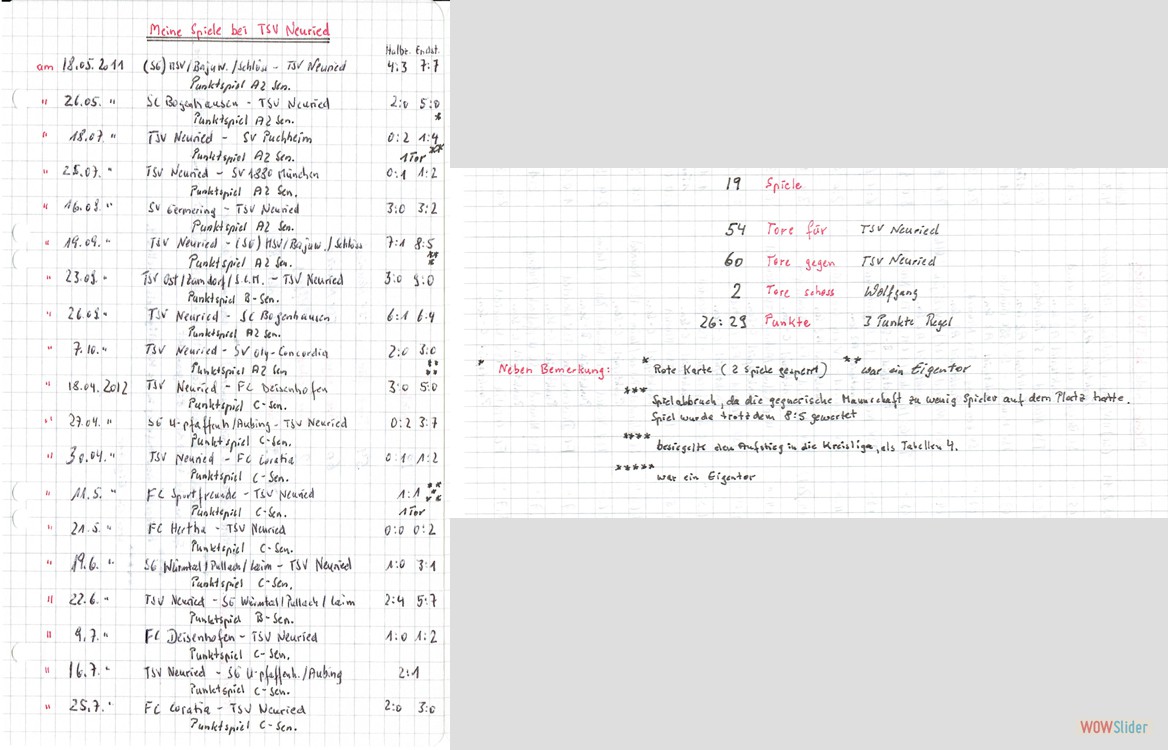 Meine Spiele bei TSV Neuried
Halbz. Endst.
am 18.05.2011 (SG) HSV/Bajuw./Schlöss - TSV Neuried 4:3 7:7
Punktspiel A2 Sen.
" 26.05. " SC Bogenhausen - TSV Neuried 2:0 5:0
Punktspiel A2 Sen. *
" 18.07. " TSV Neuried - SV Puchheim 0:2 1:4
Punktspiel A2 Sen. 1 Tor **
" 25.07. " TSV Neuried - SV 1880 München 0:1 1:2
Punktspiel A2 Sen.
" 16.08. " SV Germering - TSV Neuried 3:0 3:2
Punktspiel A2 Sen.
" 19.09. " TSV Neuried - (SG) HSV/Bajuw./Schlöss 7:1 8:5
Punktspiel A2 Sen. ***
" 23.09. " TSV Ost/Zamdorf/S.C.M. - TSV Neuried 3:0 9:0
Punktspiel B-Sen.
" 26.09. " TSV Neuried - SC Bogenhausen 6:1 6:4
Punktspiel A2 Sen.
" 7.10. " TSV Neuried - SV Oly-Concordia 2:0 3:0
Punktspiel A2 Sen ****
" 18.04.2012 TSV Neuried - FC Deisenhofen 3:0 5:0
Punktspiel C-Sen.
" 27.04. " SG U-pfaffenh/Aubing - TSV Neuried 0:2 3:7
Punktspiel C-Sen.
" 30.04. " TSV Neuried - FC Croatia 0:1 1:2
Punktspiel C-Sen.
" 11.5. " FC Sportfreunde - TSV Neuried 1:1 *****
Punktspiel C-Sen. 1 Tor
" 21.5. " FC Hertha - TSV Neuried 0:0 0:2
Punktspiel C-Sen.
" 19.6. " SG Würmtal/Pullach/Laim - TSV Neuried 1:0 3:1
Punktspiel C-Sen.
" 22.6. " TSV Neuried - SG Würmtal/Pullach/Laim 2:4 5:7
Punktspiel B-Sen.
" 9.7. " FC Deisenhofen - TSV Neuried 1:0 1:2
Punktspiel C-Sen.
" 16.7. " TSV Neuried - SG U-pfaffenh./Aubing 2:1
Punktspiel C-Sen.
" 25.7. " FC Croatia - TSV Neuried 2:0 3:0
Punktspiel C-Sen.
19 Spiele
54 Tore für TSV Neuried
60 Tore gegen TSV Neuried
2 Tore schoss Wolfgang
26:29 Punkte 3 Punkte Regel
* Neben Bemerkung: * Rote Karte (2 Spiele gesperrt) ** war ein Eigentor
*** Spielabbruch, da die gegnerische Mannschaft zu wenig Spieler auf dem Platz hatte.
Spiel wurde trotzdem 8:5 gewertet
**** besiegelte den Aufstieg in die Kreisliga, als Tabellen 4.
***** war ein Eigentor
WOWSlider